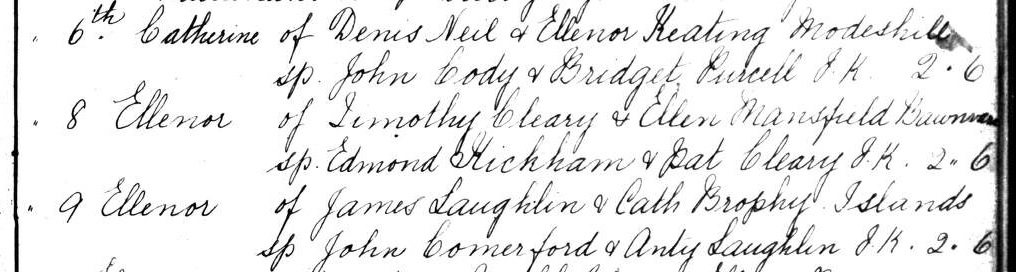 " 6th. Catherine of Denis Neil & Ellenor Keating Modeshill
sp. John Cody & Bridget Purcell J.K. 2.6
" 8 Ellenor of Timothy Cleary & Ellen Mansfield
sp. Edmond Kickham & Pat Cleary J.K. 2..6
" 9 Ellenor of James Laughlin & Cath Brophy Islands
sp John Comerford & Anty Laughlin J.K. 2.6